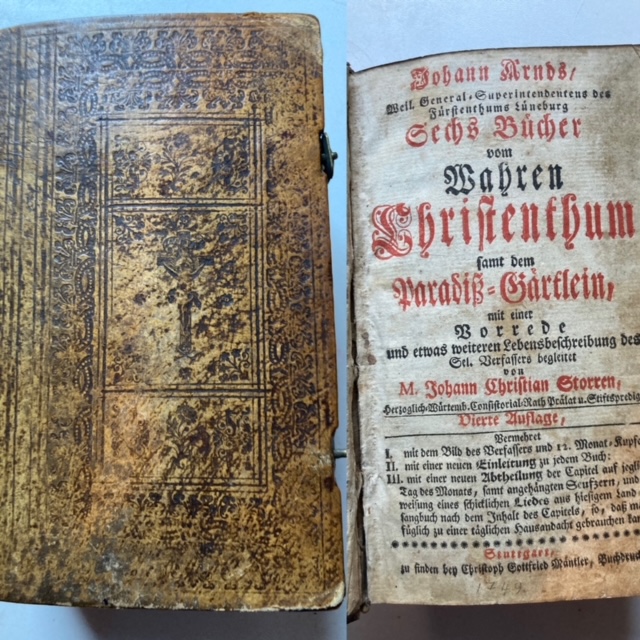 Johann Arnds,
Weil. General-Superintendentens des
Fürstenthums Lüneburg
Sechs Bücher
vom
Wahren
Christenthum
samt dem
Paradiß-Gärtlein,
mit einer
Vorrede
und etwas weiteren Lebensbeschreibung des
Sel. Verfassers begleitet
von
M. Johann Christian Storren,
Herzoglich-Würtemb. Consistorial-Rath Prälat u. Stiftspredig
Vierte Auflage,
Vermehret
I. mit dem Bild des Verfassers und 12. Monat-Kupfe
II. mit einer neuen Einleitung zu jedem Buch:
III. mit einer neuen Abtheilung der Capitel auf jegl
Tag des Monats, samt angehängten Seufzern, und
weisung eines schicklichen Liedes aus hiesigem Land
sangbuch nach dem Inhalt des Capitels, so, daß m
füglich zu einer täglichen Hausandacht gebrauchen ka
Stuttgart,
zu finden bey Christoph Gottfried Mäntler, Buchdruck